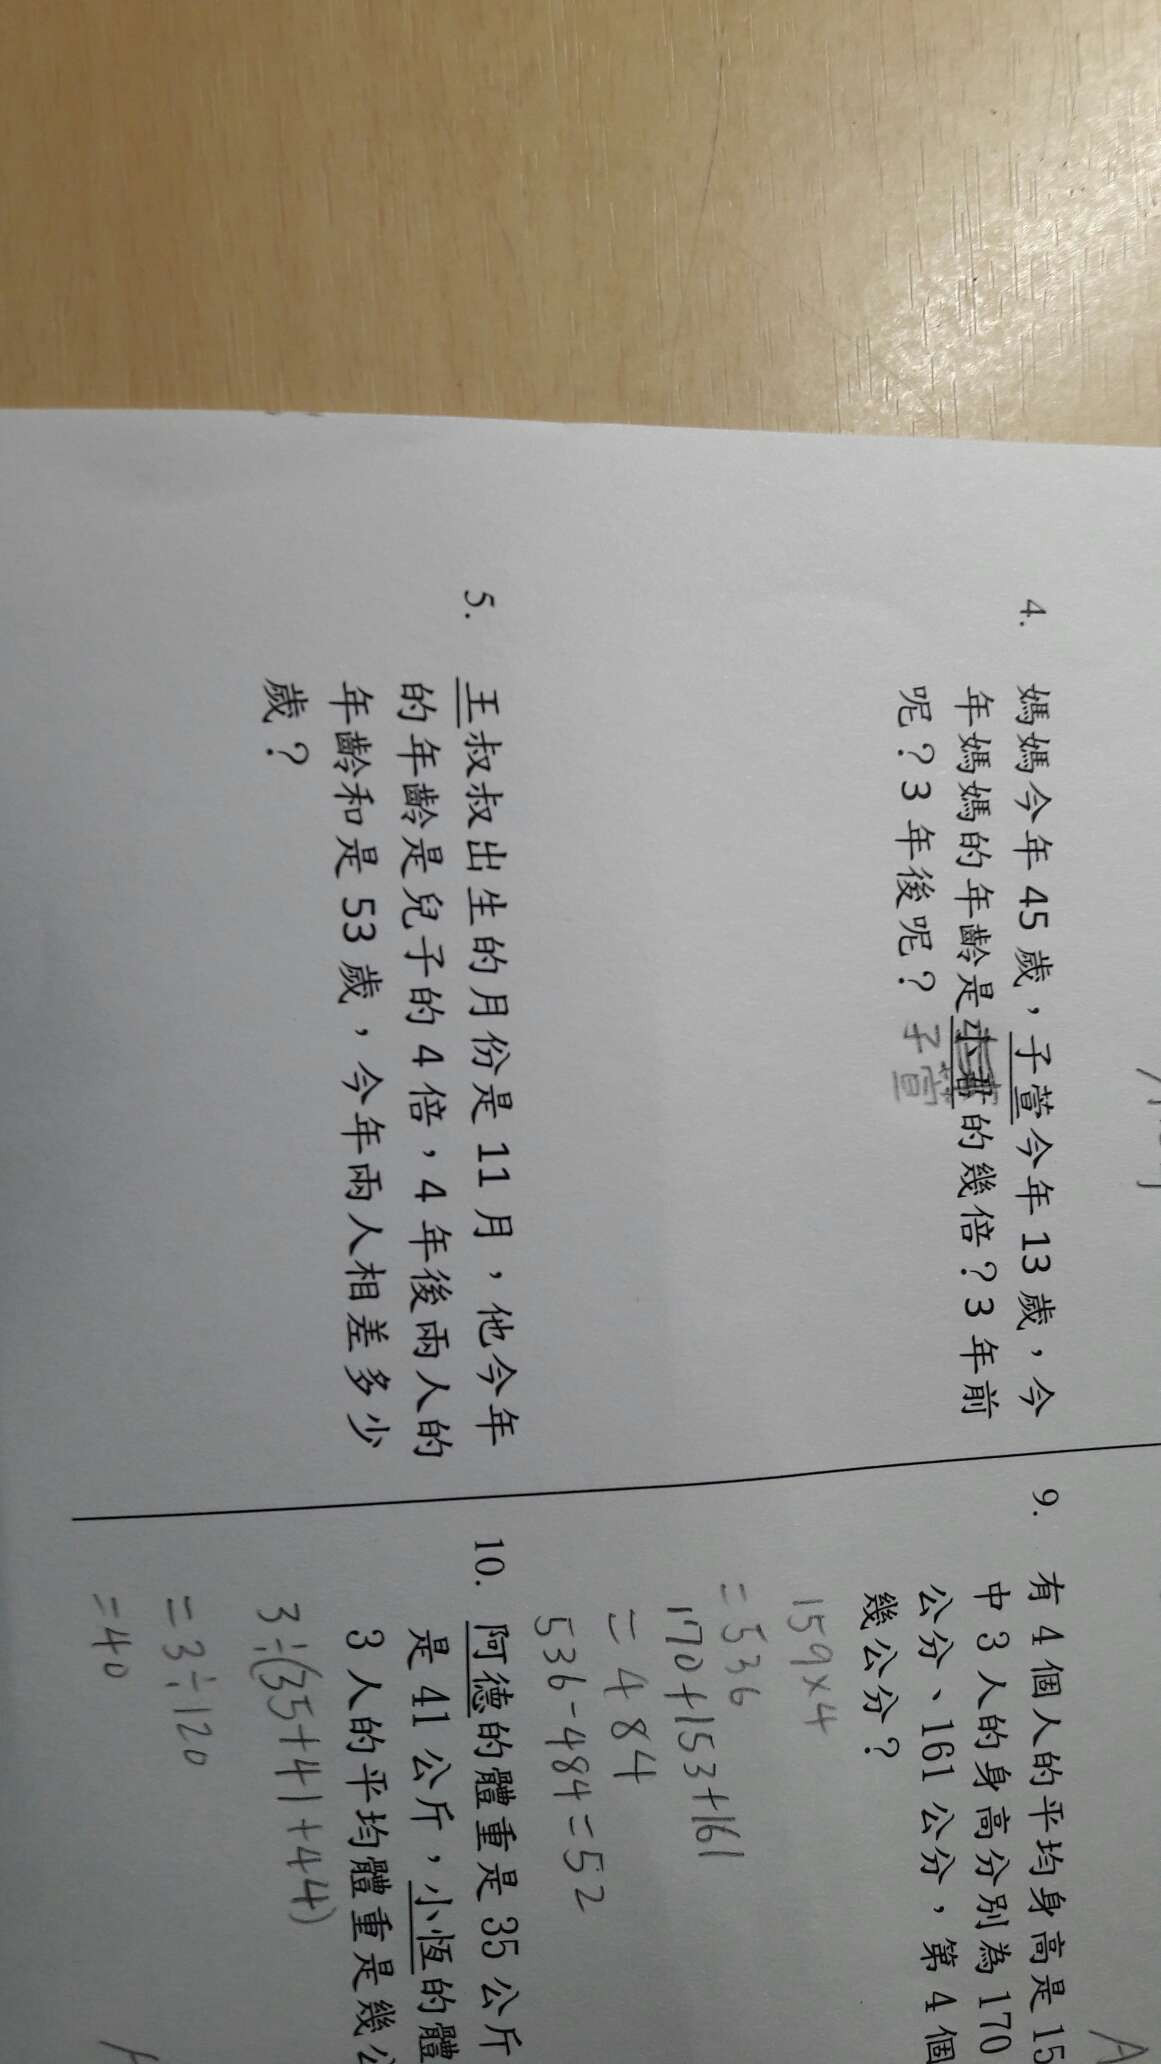 4. 媽媽今年 45 歲，子萱今年 13 歲，今
年媽媽的年齡是的幾倍？3 年前
呢？3 年後呢？
子萱
5. 王叔叔出生的月份是 11 月，他今年
的年齡是兒子的 4 倍，4 年後兩人的
年齡和是 53 歲，今年兩人相差多少
歲？
9. 有 4 個人的平均身高是 15
中 3 人的身高分別為 170
公分、161 公分，第 4 個
幾公分？
159×4
=536
170+153+161
=484
536-484=52
10. 阿德的體重是 35 公斤
是 41 公斤，小恆的體
3 人的平均體重是幾公
3÷(35+41+44)
=3÷120
=40